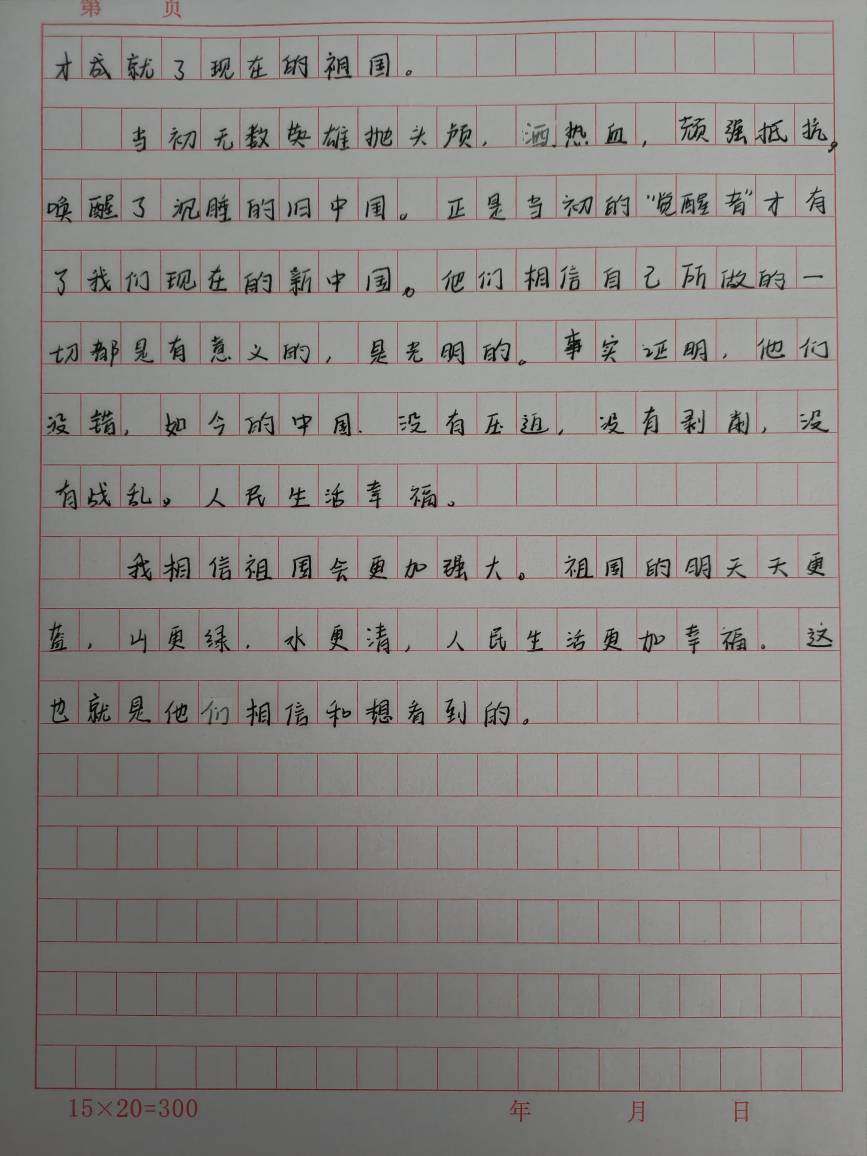 第 页
才成就了现在的祖国。
当初无数英雄抛头颅，洒热血，顽强抵抗，
唤醒了沉睡的旧中国。正是当初的“觉醒者”才有
了我们现在的新中国。他们相信自己所做的一
切都是有意义的，是光明的。事实证明，他们
没错，如今的中国．没有压迫，没有剥削，没
有战乱。人民生活幸福。
我相信祖国会更加强大。祖国的明天天更
蓝，山更绿．水更清，人民生活更加幸福．这
也就是他们相信和想看到的。
15×20=300 年 月 日